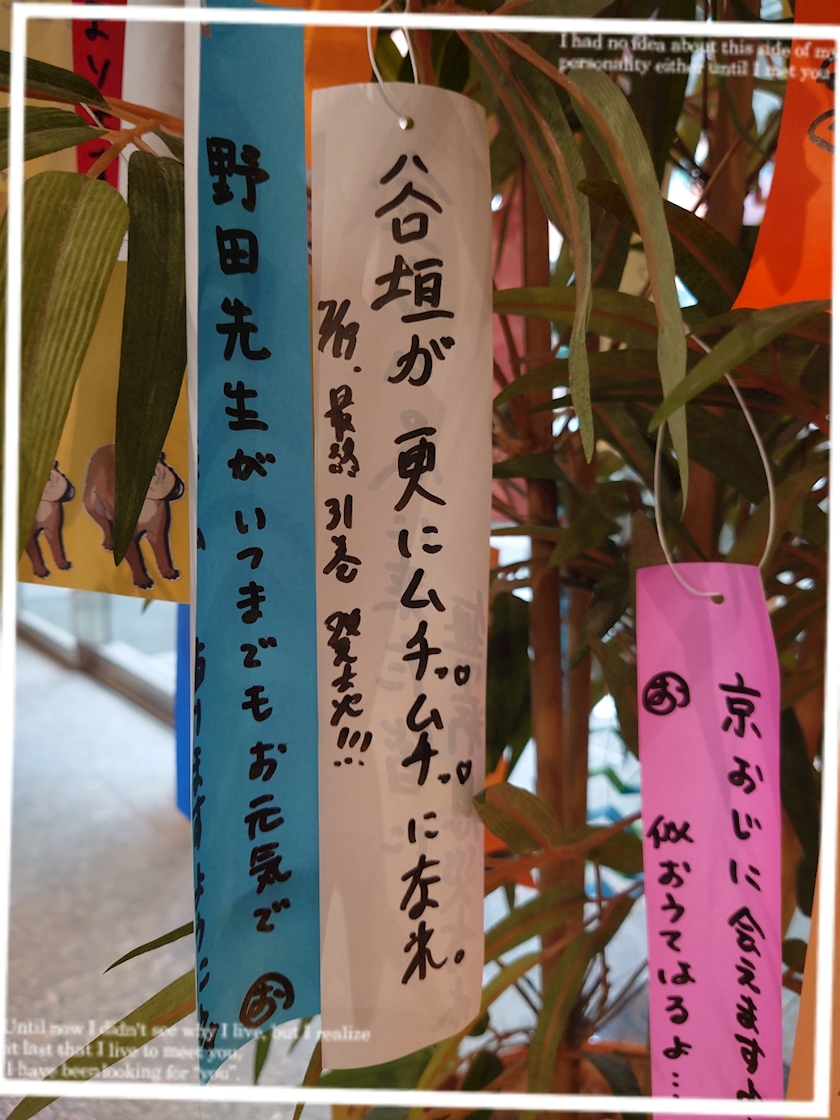 I had no idea about this side of my
personality either until I met you.
京おじに会えます
㋔ 似おうてはるよ…
谷垣が更にムチッ♡ムチッ♡になれ。
7/19. 最終31巻 発売!!!
野田先生がいつまでもお元気で
Until now I didn't see why I live, but I realize
at last that I live to meet you.
I have been looking for "you".